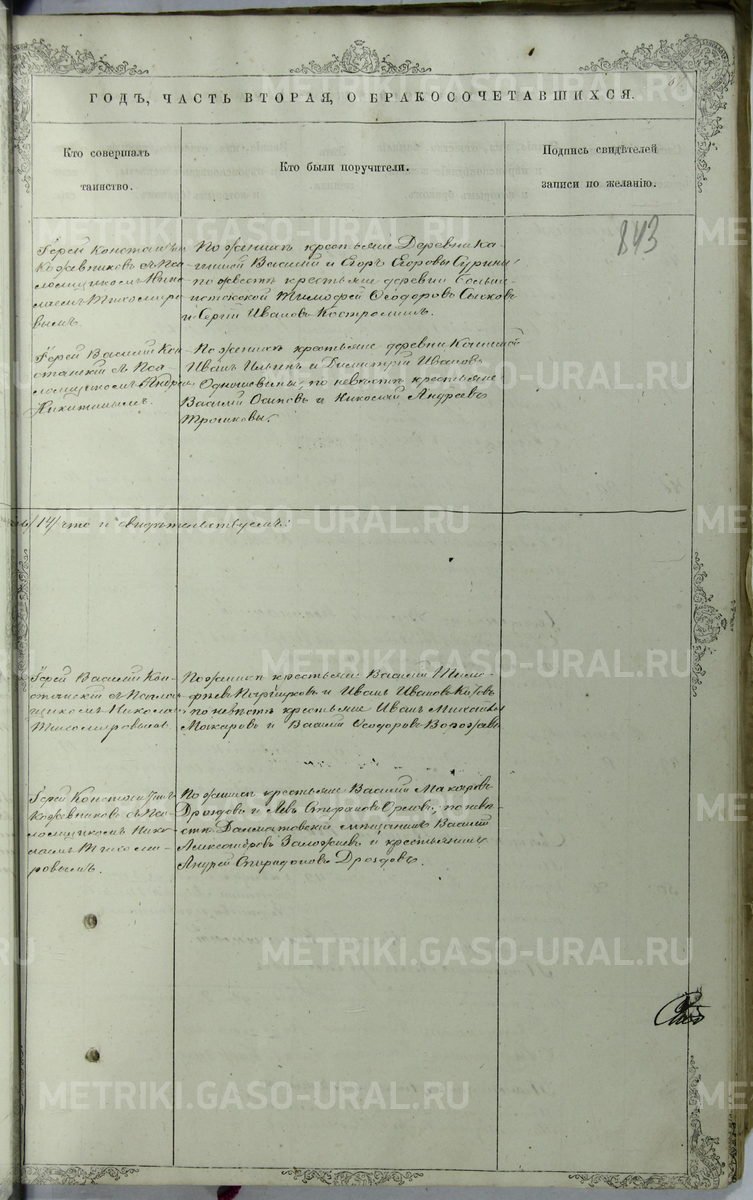 ГОДЪ, ЧАСТЬ ВТОРАЯ, О БРАКОСОЧЕТАВШИХСЯ.
Кто совершалъ
таинство.
Кто были поручители.
Подпись свидѣтелей
записи по желанію.
843
Іерей Константинъ
Кожевниковъ съ Пса
ломщикомъ Нико
лаемъ Тихомиро
вымъ.
По женихѣ крестьяне Деревни Ка
Василий и Егоръ Егоровы Сурины
по невестѣ крестьяне деревни
Тимофей Ѳеодоровъ
и Сергий Ивановъ Костромин.
Іерей Василий Кон
съ Пса
ломщикомъ Андре
Никитинымъ.
По женихѣ крестьяне деревни
Иванъ Ильинъ и Димитрий Ивановъ
по невестѣ крестьяне
Василий Осиповъ и Николай Андреевъ
Трошковы.
/14/ что и свидѣтельствуемъ:
Іерей Василий Кон-
съ Псалом
щикомъ Никола
Тихомировымъ
По женихѣ крестьяне Василий Тимо-
феевъ и Иванъ Ивановъ
по невестѣ крестьяне Иванъ Михайлов
Макаровъ и Василий Ѳеодоровъ
Іерей Константинъ
Кожевниковъ съ Пса
ломщикомъ Нико-
лаемъ Тихоми-
ровымъ.
По женихѣ крестьяне Василий Макаровъ
Дроздовъ и Левъ Орловъ, по невѣ
стѣ Далматовский мѣщанинъ Василий
Александровъ и крестьянинъ
Андрей Спиридоновъ Дроздовъ.
METRIKI.GASO-URAL.RU